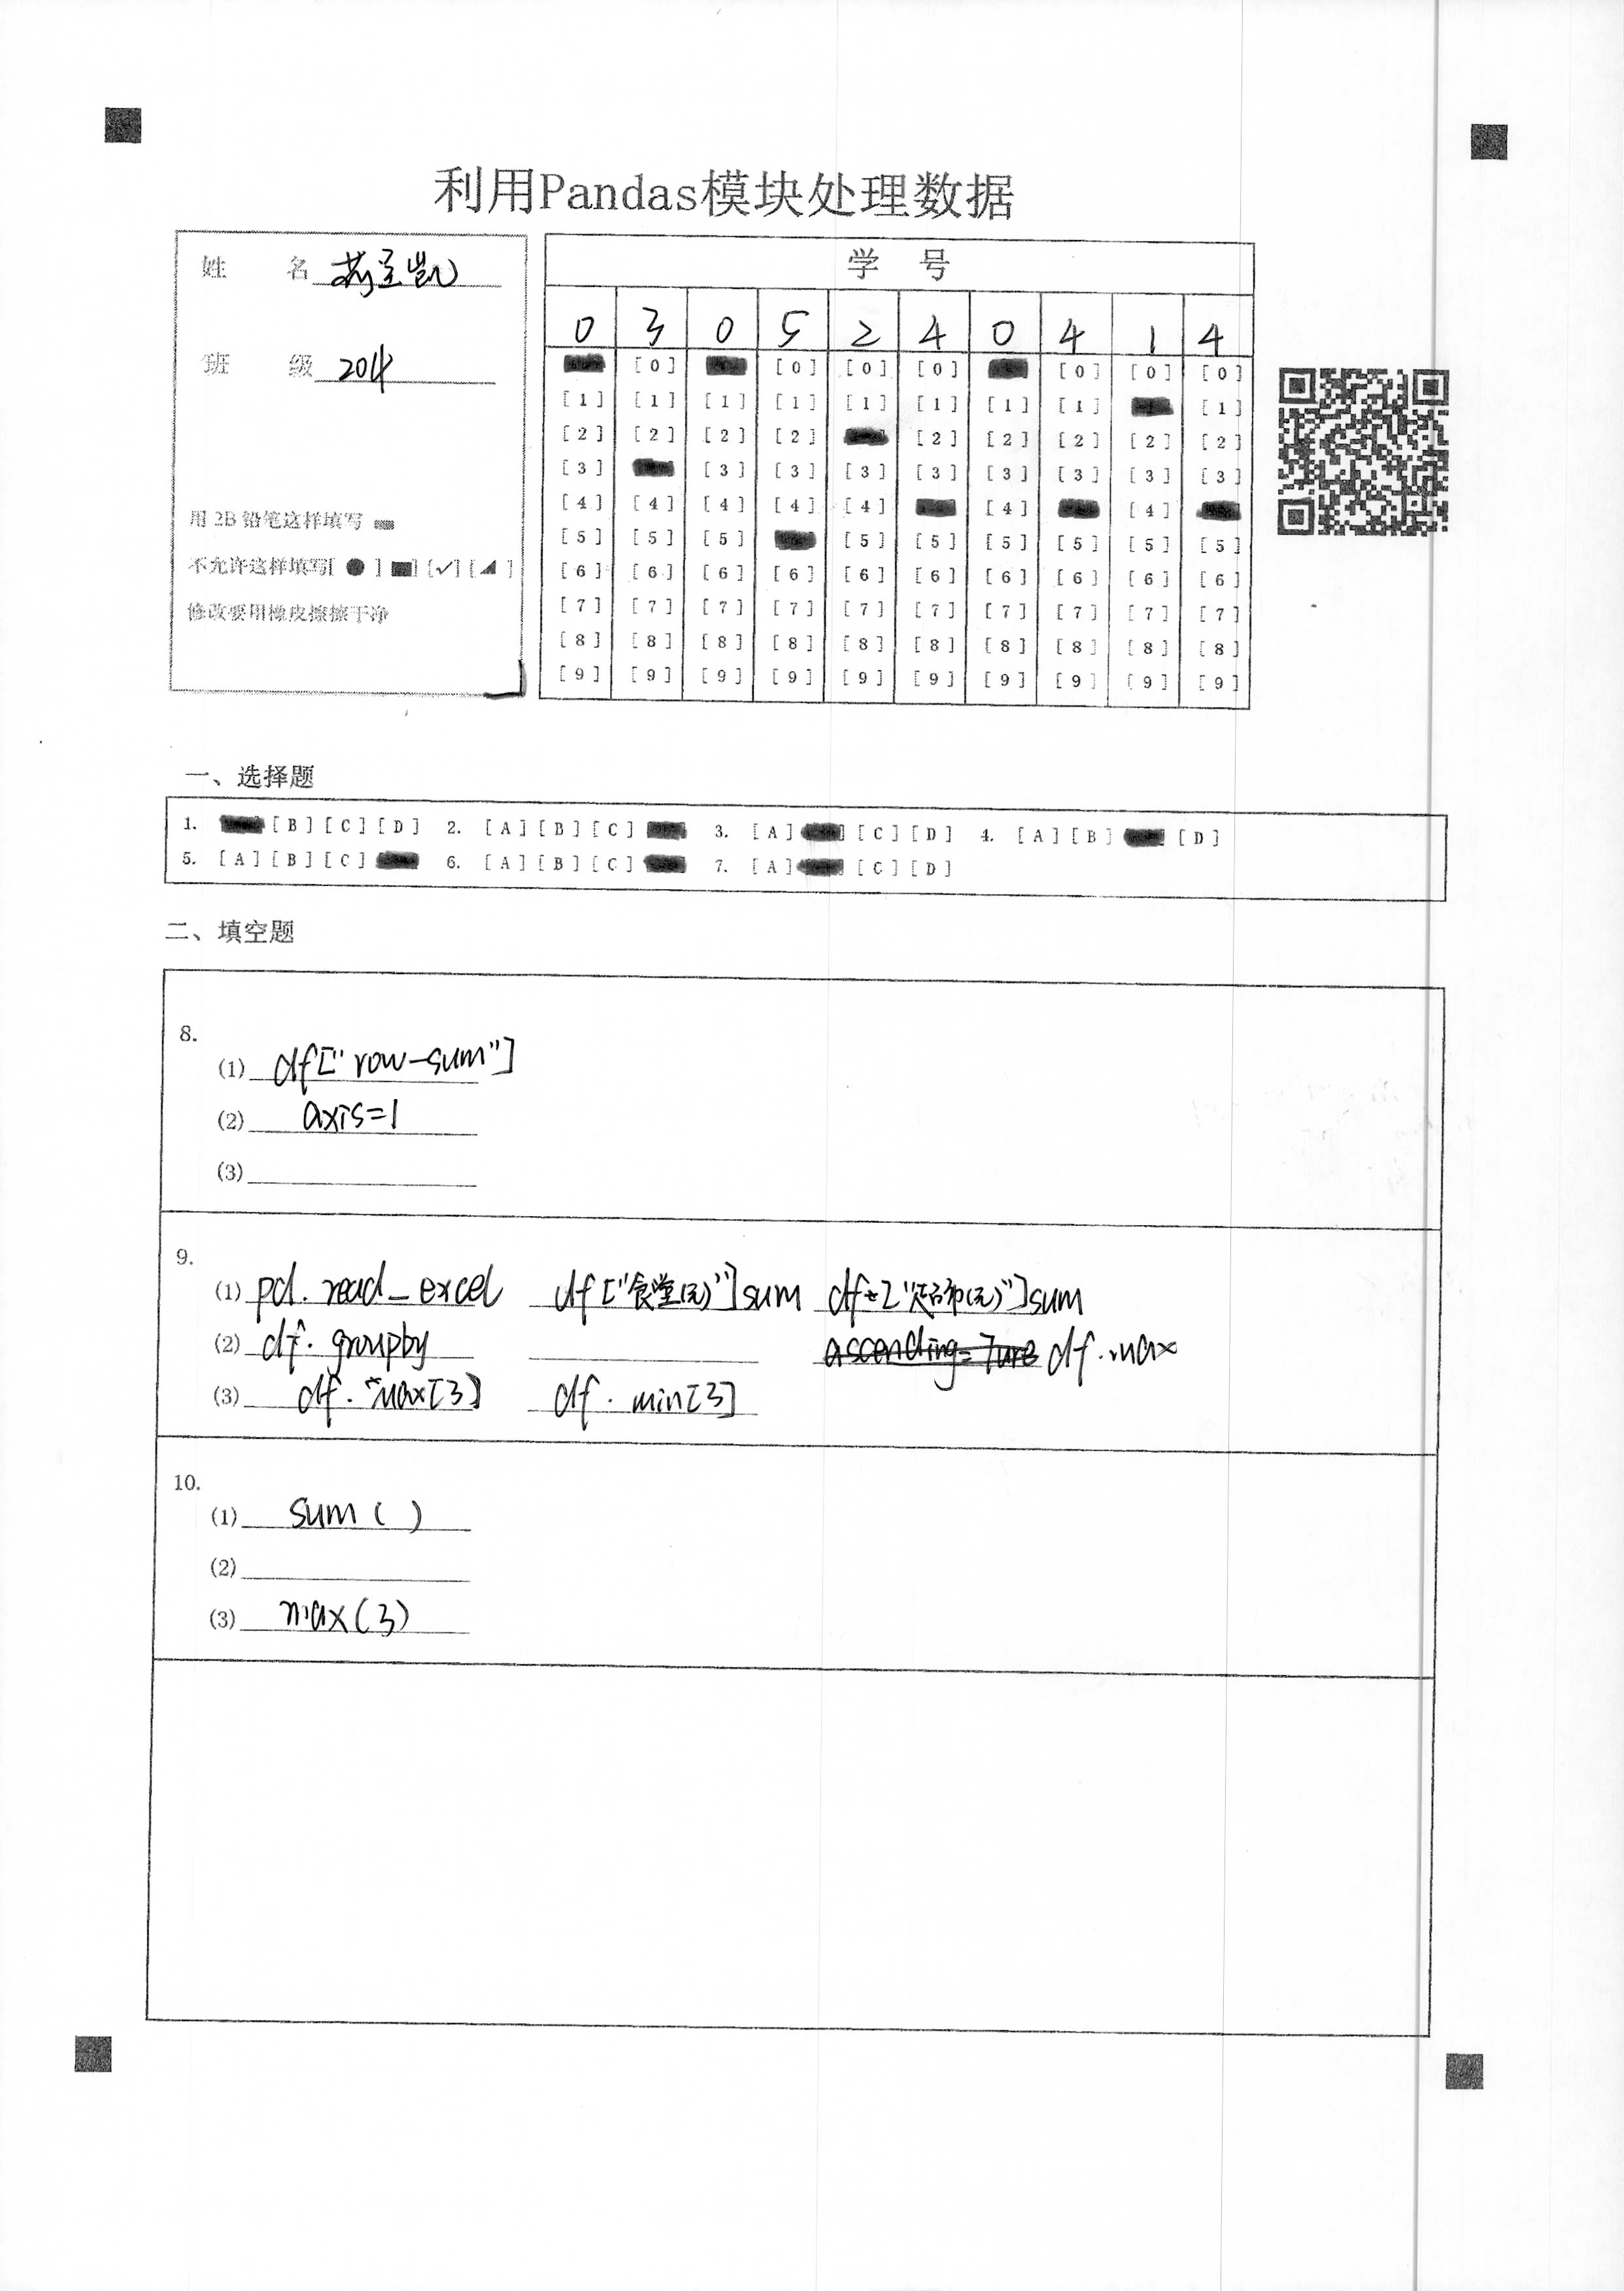 利用Pandas模块处理数据
姓 名
班 级 204
用 2B 铅笔这样填写
不允许这样填写[ ● ] [■] [✓] [◢ ]
修改要用橡皮擦擦干净
学 号
0 3 0 5 2 4 0 4 1 4
[0] [0] [0] [0] [0] [0] [0]
[1] [1] [1] [1] [1] [1] [1] [1] [1]
[2] [2] [2] [2] [2] [2] [2] [2] [2]
[3] [3] [3] [3] [3] [3] [3] [3] [3]
[4] [4] [4] [4] [4] [4] [4]
[5] [5] [5] [5] [5] [5] [5] [5] [5]
[6] [6] [6] [6] [6] [6] [6] [6] [6] [6]
[7] [7] [7] [7] [7] [7] [7] [7] [7] [7]
[8] [8] [8] [8] [8] [8] [8] [8] [8] [8]
[9] [9] [9] [9] [9] [9] [9] [9] [9] [9]
一、选择题
1. [B] [C] [D] 2. [A] [B] [C] 3. [A] [C] [D] 4. [A] [B] [D]
5. [A] [B] [C] 6. [A] [B] [C] 7. [A] [C] [D]
二、填空题
8.
(1) df["row-sum"]
(2) axis=1
(3)
9.
(1) pd.read_excel df["食堂(元)"]sum df["超市(元)"]sum
(2) df.groupby df.max
(3) df.max[3] df.min[3]
10.
(1) sum( )
(2)
(3) max(3)